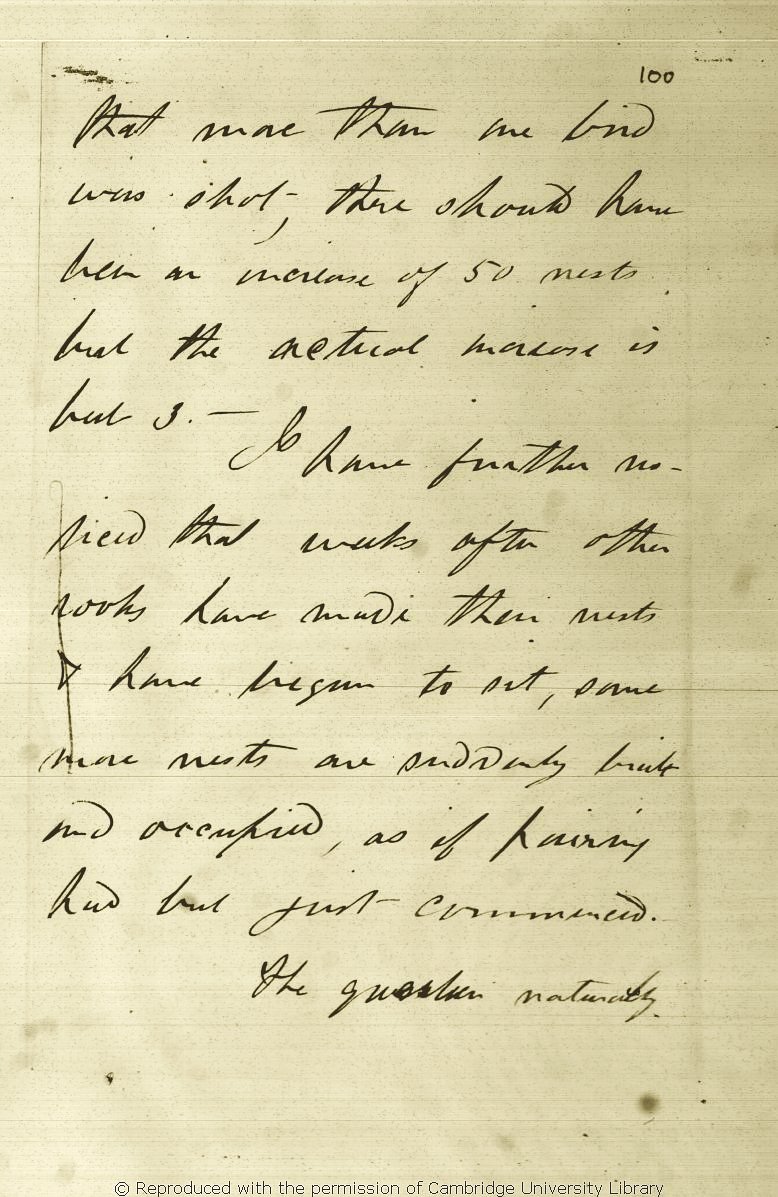 100
that more than one bird
was shot, there should have
been an increase of 50 nests
but the actual increase is
but 3. — I have further no-
ticed that weeks after other
rooks have made their nests
& have begun to sit, some
more nests are suddenly built
and occupied, as if pairing
had but just commenced.
The question naturally
© Reproduced with the permission of Cambridge University Library